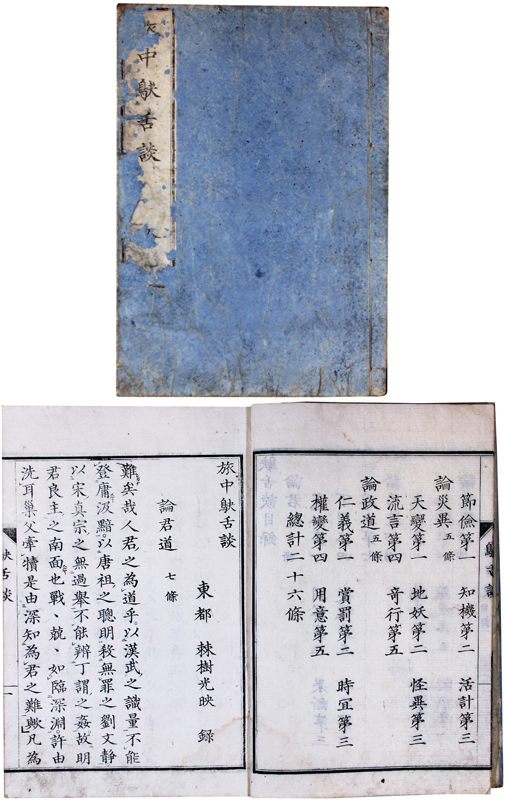 中鴃舌談
一
節儉第一 知機第二 活計第三
論災異 五條
天變第一 地妖第二 怪異第三
流言第四 奇行第五
論政道 五條
仁義第一 賞罰第二 時宜第三
權變第四 用意第五
總計二十六條
旅中鴃舌談
東都 棘樹光映 録
論君道 七條
難矣哉人君之為道乎。以漢武之識量不能
登庸汲黯。以唐祖之聰明殺無罪之劉文静
以宋真宗之無過舉不能辨丁謂之姦故明
君良主之南面也戰、兢、如臨深淵。許由
洗耳巢父牽犢是由深知為君之難歟凡為
鴃舌談